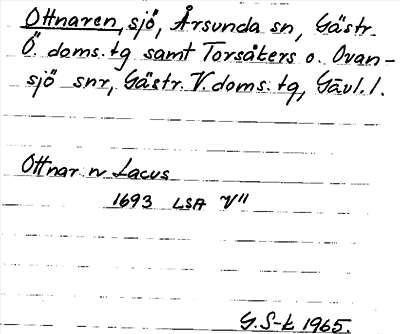 Ottnaren, sjö, Årsunda sn, Gästr.
Ö. doms. tg samt Torsåkers o. Ovan-
sjö snr, Gästr. V. doms. tg, Gävl. l.
Ottnar n Lacus
1693 LSA V"
G. S-k 1965.